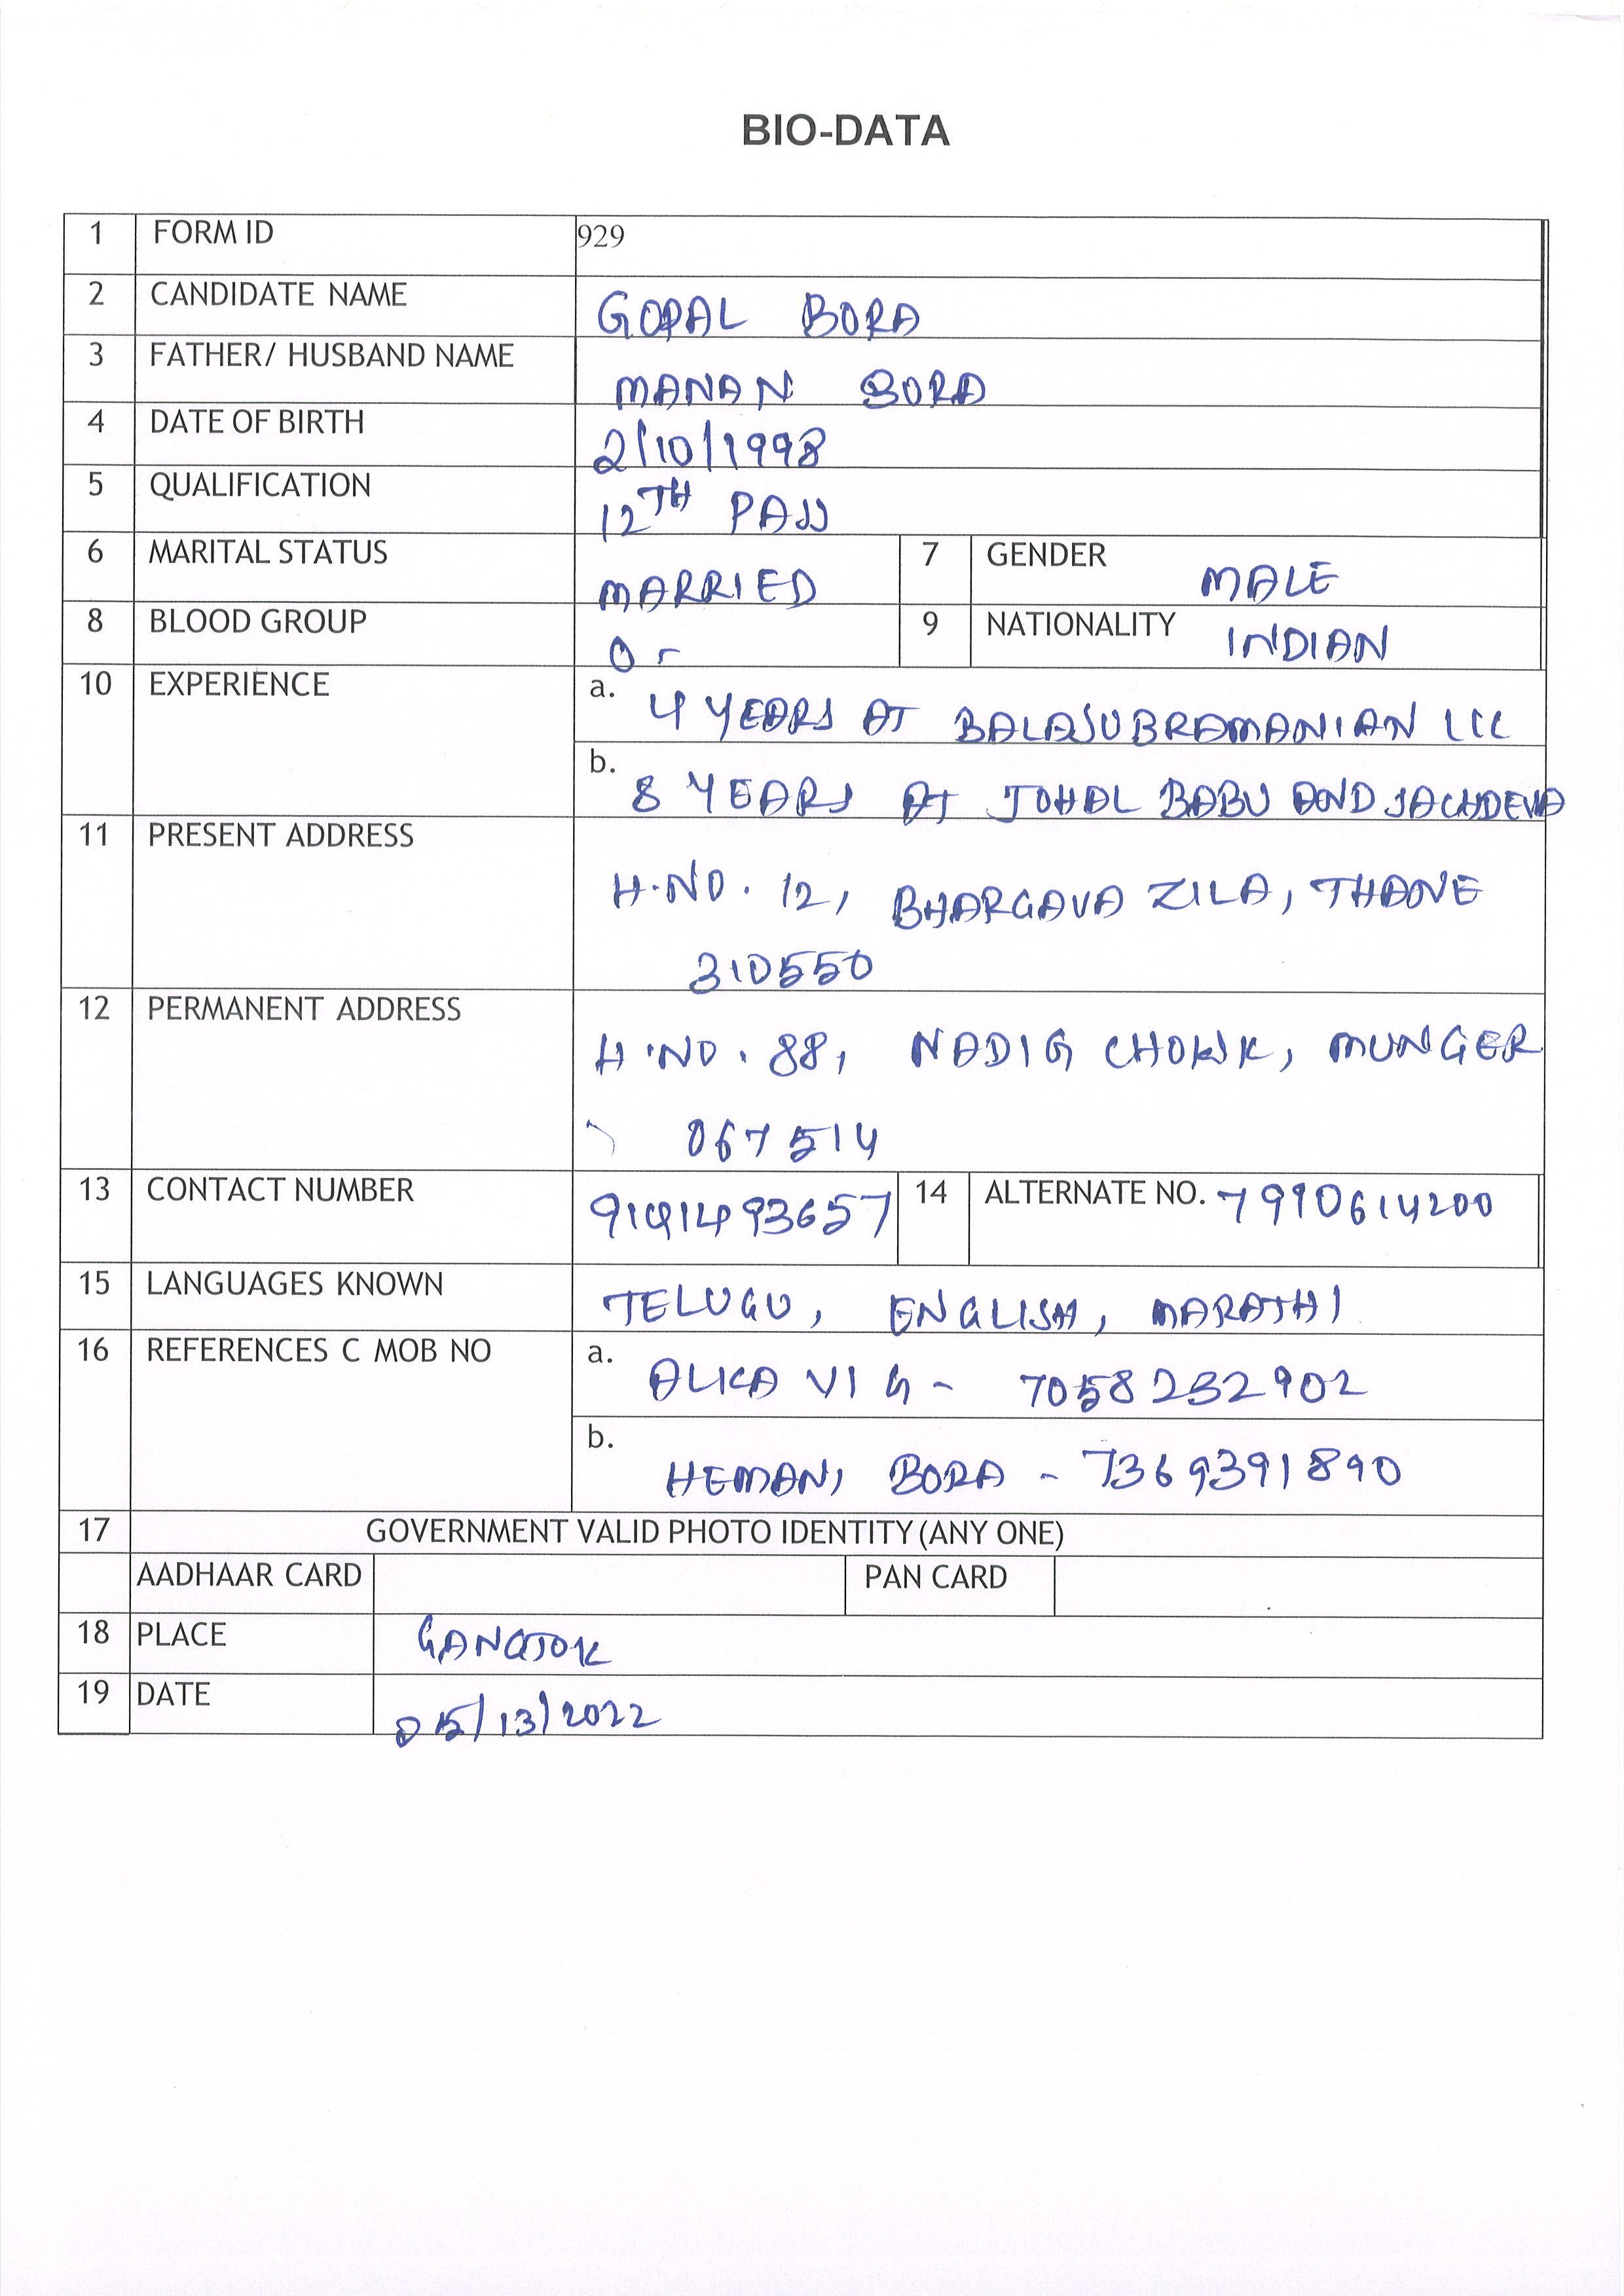 BIO-DATA
1 FORM ID 929
2 CANDIDATE NAME GOPAL BORA
3 FATHER/ HUSBAND NAME MANAN BORA
4 DATE OF BIRTH 2/10/1998
5 QUALIFICATION 12TH PASS
6 MARITAL STATUS MARRIED 7 GENDER MALE
8 BLOOD GROUP O - 9 NATIONALITY INDIAN
10 EXPERIENCE a. 4 YEARS AT BALASUBRAMANIAN LLC
b. 8 YEARS AT JOHAL BABU AND SACHDEVA
11 PRESENT ADDRESS H.NO. 12, BHARGAVA ZILA, THANE
310550
12 PERMANENT ADDRESS H.NO. 88, NADIG CHOWK, MUNGER
067514
13 CONTACT NUMBER 14 ALTERNATE NO. 7990614200
15 LANGUAGES KNOWN TELUGU, ENGLISH, MARATHI
16 REFERENCES C MOB NO a. ALKA VIG - 7058232902
b. HEMANI BORA - 7369391890
17 GOVERNMENT VALID PHOTO IDENTITY (ANY ONE)
AADHAAR CARD PAN CARD
18 PLACE GANGTOK
19 DATE 05/13/2022